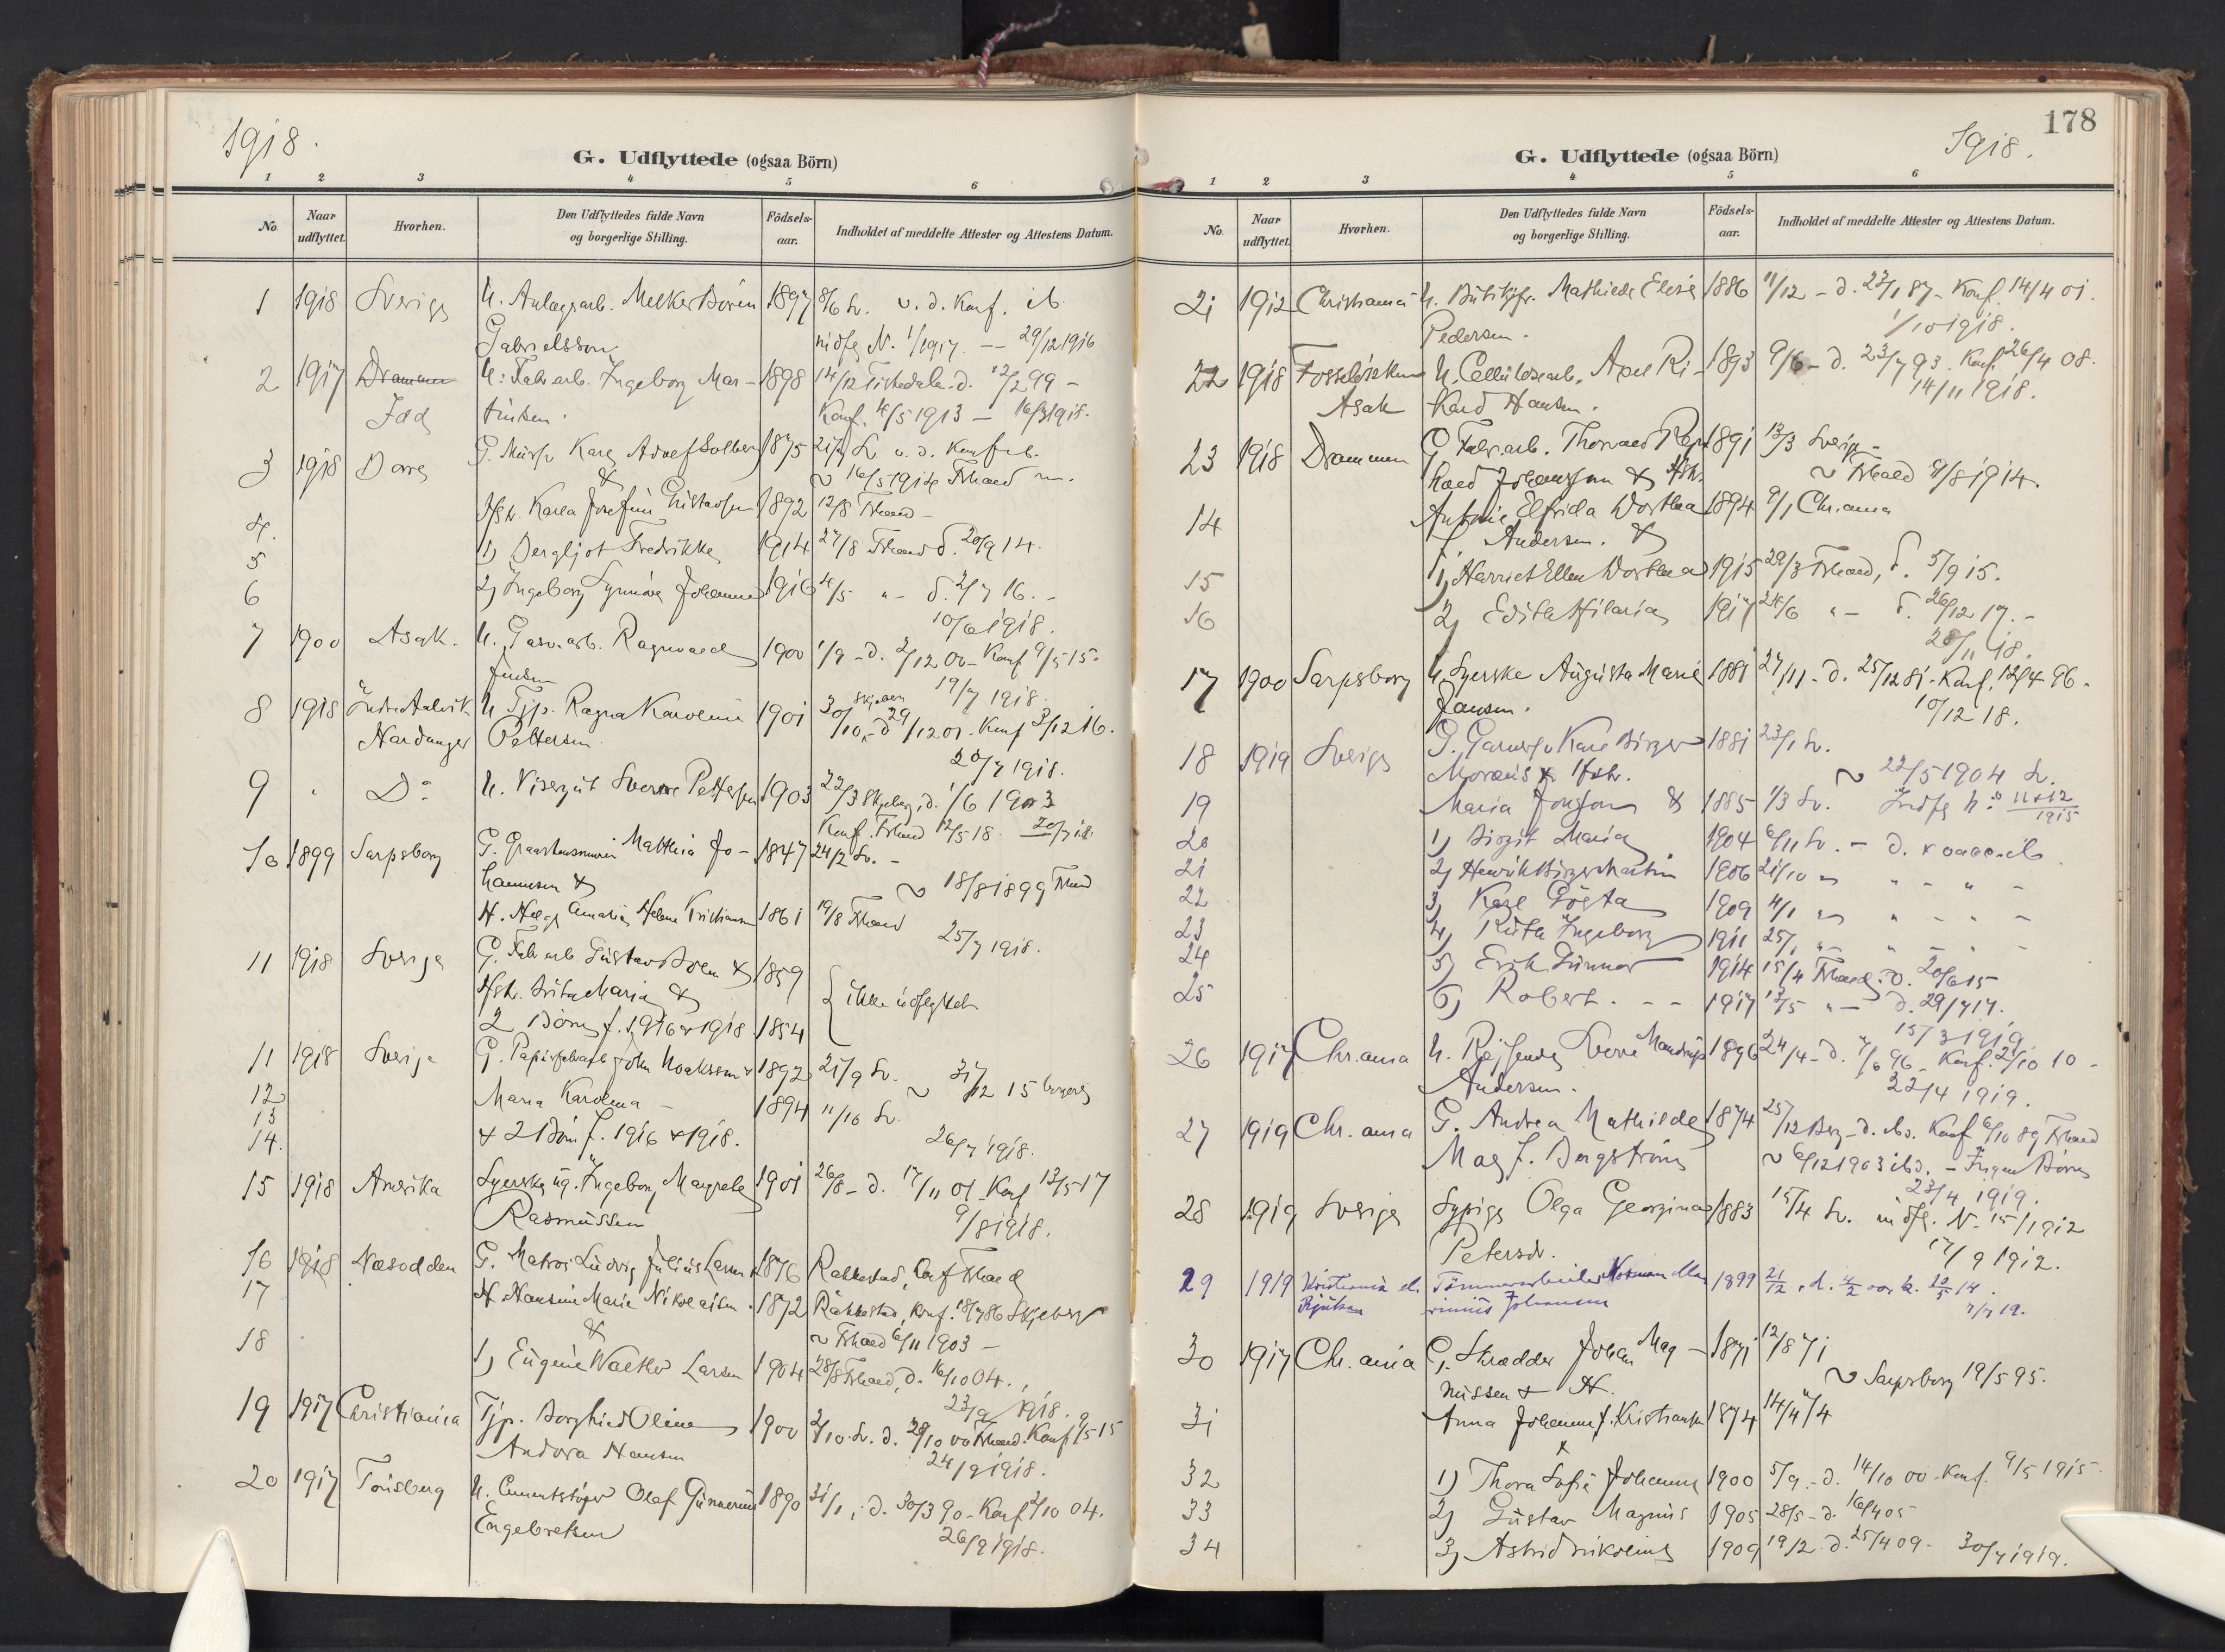 1918.
G. Udflyttede (ogsaa Börn)
1 2 3 4 5 6
No. Naar udflyttet. Hvorhen. Den Udflyttedes fulde Navn og borgerlige Stilling. Födsels-aar. Indholdet af meddelte Attester og Attestens Datum.
1 1918 Sverige U. Anlægsarb. Melker Boren 1897 8/6 Sv. v. d. Konf. ib
Gabrielsson indfl N. 1/1917 -- 29/12 1916
2 1917 Drammen U. Fabr.arb. Ingeborg Mar- 1898 14/12 Tistedalen d. 12/2 99 -
Idd tinsen. Konf. 4/5 1913 - 16/3 1918.
3 1918 Dovre G. Murer Karl Adolf Solberg 1875 21/7 Sv v. d. Konf ib.
& ~ 16/5 1914 Frhald
4. Hstr. Karla Josefine Gustavsen 1892 12/8 Frhald -
5 1) Bergljot Fredrikke 1914 27/8 Frhald d. 20/9 14.
6 2) Ingeborg Synnöve Johanne 1916 4/5 " - d. 2/7 16. -
10/6 1918.
7 1900 Asak. U. Garv.arb. Ragnvald 1900 1/9 - d. 2/12 00 - Konf 9/5 15.
Jensen 19/7 1918.
8 1918 Indre Aalvik U Tjp. Ragna Karoline 1901 30/10 Skjeberg - d 29/12 01 - Konf 3/12 16.
Hardanger Pettersen 20/7 1918.
9 " Do U. Visergut Sverre Pettersen 1903 22/3 Skjeberg, d. 1/6 1903
Konf. Frhald 12/5 18. 20/7 18.
10 1899 Sarpsborg G. Graastensmurer Matthia Jo- 1847 24/2 Sv. -
hannesen & ~ 18/8 1899 Frhd
H. Helga Amalia Helene Kristiansen 1861 19/8 Frhald
25/7 1918.
11 1918 Sverige G. Fabr.arb Gustav Boren & 1859
Hstr. Brita Maria & ikke udflyttet
2 Börn f. 1916 & 1918 1854
11 1918 Sverige G. Papirfabrarb John Noaksson & 1892 21/9 Sv. ~ 31/12 15 borgerlig
12 Maria Karolina - 1894 11/10 Sv.
13
14. & 2 Börn f. 1916 & 1918. 26/7 1918.
15 1918 Amerika Syerske ug. Ingeborg Margrete 1901 26/8 - d. 17/11 01 - Konf 13/5 17
Rasmussen 9/8 1918.
16 1918 Næsodden G. Matros Ludvig Julius Larsen & 1876 Rakkestad, Konf Frhald
17 H. Hansine Marie Nikolaisen 1872 Rakkestad, Konf. 18/7 86 Skjeberg
& ~ Frhald 6/11 1903 -
18 1) Eugenie Walther Larsen 1904 28/8 Frhald, d. 16/10 04.
23/9 1918.
19 1917 Christiania Tjp. Borghild Oline 1900 2/10 Sv. d. 28/10 00 Frhald. Konf 9/5 15
Andora Hansen 24/9 1918.
20 1917 Tönsberg U. Cementstöper Olaf Gunnerius 1890 31/1, d. 30/3 90 - Konf 2/10 04.
Engebretsen 26/9 1918.
178
1918.
G. Udflyttede (ogsaa Börn)
1 2 3 4 5 6
No. Naar udflyttet. Hvorhen. Den Udflyttedes fulde Navn og borgerlige Stilling. Födsels-aar. Indholdet af meddelte Attester og Attestens Datum.
21 1912 Christiania U. Butikfr. Mathilde Elise 1886 11/12 - d. 23/1 87 - Konf. 14/4 01.
Pedersen. 1/10 1918.
22 1918 Fosselökken U. Cellulosearb. Axel Ri- 1893 9/6 - d. 23/7 93. Konf. 26/4 08.
Asak kard Hansen. 14/11 1918.
23 1918 Drammen G Fabr.arb. Thorvald Rag- 1891 13/3 Sverige -
hard Johansson & Hstr. ~ Frhald 8/8 1914.
14 Antonie Elfrida Dorthea 1894 9/1 Chr.ania
f. Andersen. &
15 1) Harriet Ellen Dorthea 1915 29/3 Frhald, d. 5/9 15.
16 2) Edith Hilaria 1917 24/6 " - d. 26/12 17. -
28/11 18.
17 1900 Sarpsborg U. Syerske Augusta Marie 1881 27/11 - d. 25/12 81 - Konf. 12/4 96.
Jansen. 10/12 18.
18 1919 Sverige G. Garversv Karl Birger 1881 23/1 Sv.
Moræus & Hstr. ~ 22/5 1904 Sv.
19 Maria Jonsson & 1885 1/3 Sv. Indfl No 11+12/1915
20 1) Birgit Maria 1904 6/11 Sv. - d. & vacc. ib
21 2) Henrik Birger Martin 1906 21/10 " " - " -
22 3) Karl Gösta 1909 4/1 " " - " -
23 4) Ruth Ingeborg 1911 25/1 " " - " -
24 5) Erik Gunnar 1914 15/4 Frhald. d. 20/6 15
25 6) Robert. - - 1917 13/5 " - d. 29/7 17.
15/3 1919.
26 1917 Chr.ania U. Rejsende Sverre Mandrup 1896 24/4 - d. 7/6 96 - Konf. 2/10 10 -
Andersen. 22/4 1919.
27 1919 Chr.ania G. Andrea Mathilde 1874 25/12 Berg - d. ibd. Konf 6/10 89 Frhald
Mag f. Bergström ~ 6/12 1903 ibd. - Ingen Börn
23/4 1919.
28 1919 Sverige Sypige Olga Georgina 1883 15/4 Sv. indfl. N. 15/1912
Petersdr. 17/9 1912.
29 1919 Kristiania el. Tömmerarbeider Norman Ma- 1899 21/12, d. 4/2 00, k. 20/5 14.
Rjukan rinius Johansen 7/7 19.
30 1917 Chr.ania G. Skrædder Johan Mag- 1871 12/8 71
nussen & H. ~ Sarpsborg 19/5 95.
31 Anna Johanne f. Kristiansen 1874 14/4 74
&
32 1) Thora Sofie Johanne 1900 5/9 - d. 14/10 00 - Konf. 9/5 1915.
33 2) Gustav Magnus 1905 28/5 - d. 16/4 05
34 3) Astrid Nikoline 1909 19/2 d. 25/4 09. 30/7 1919.